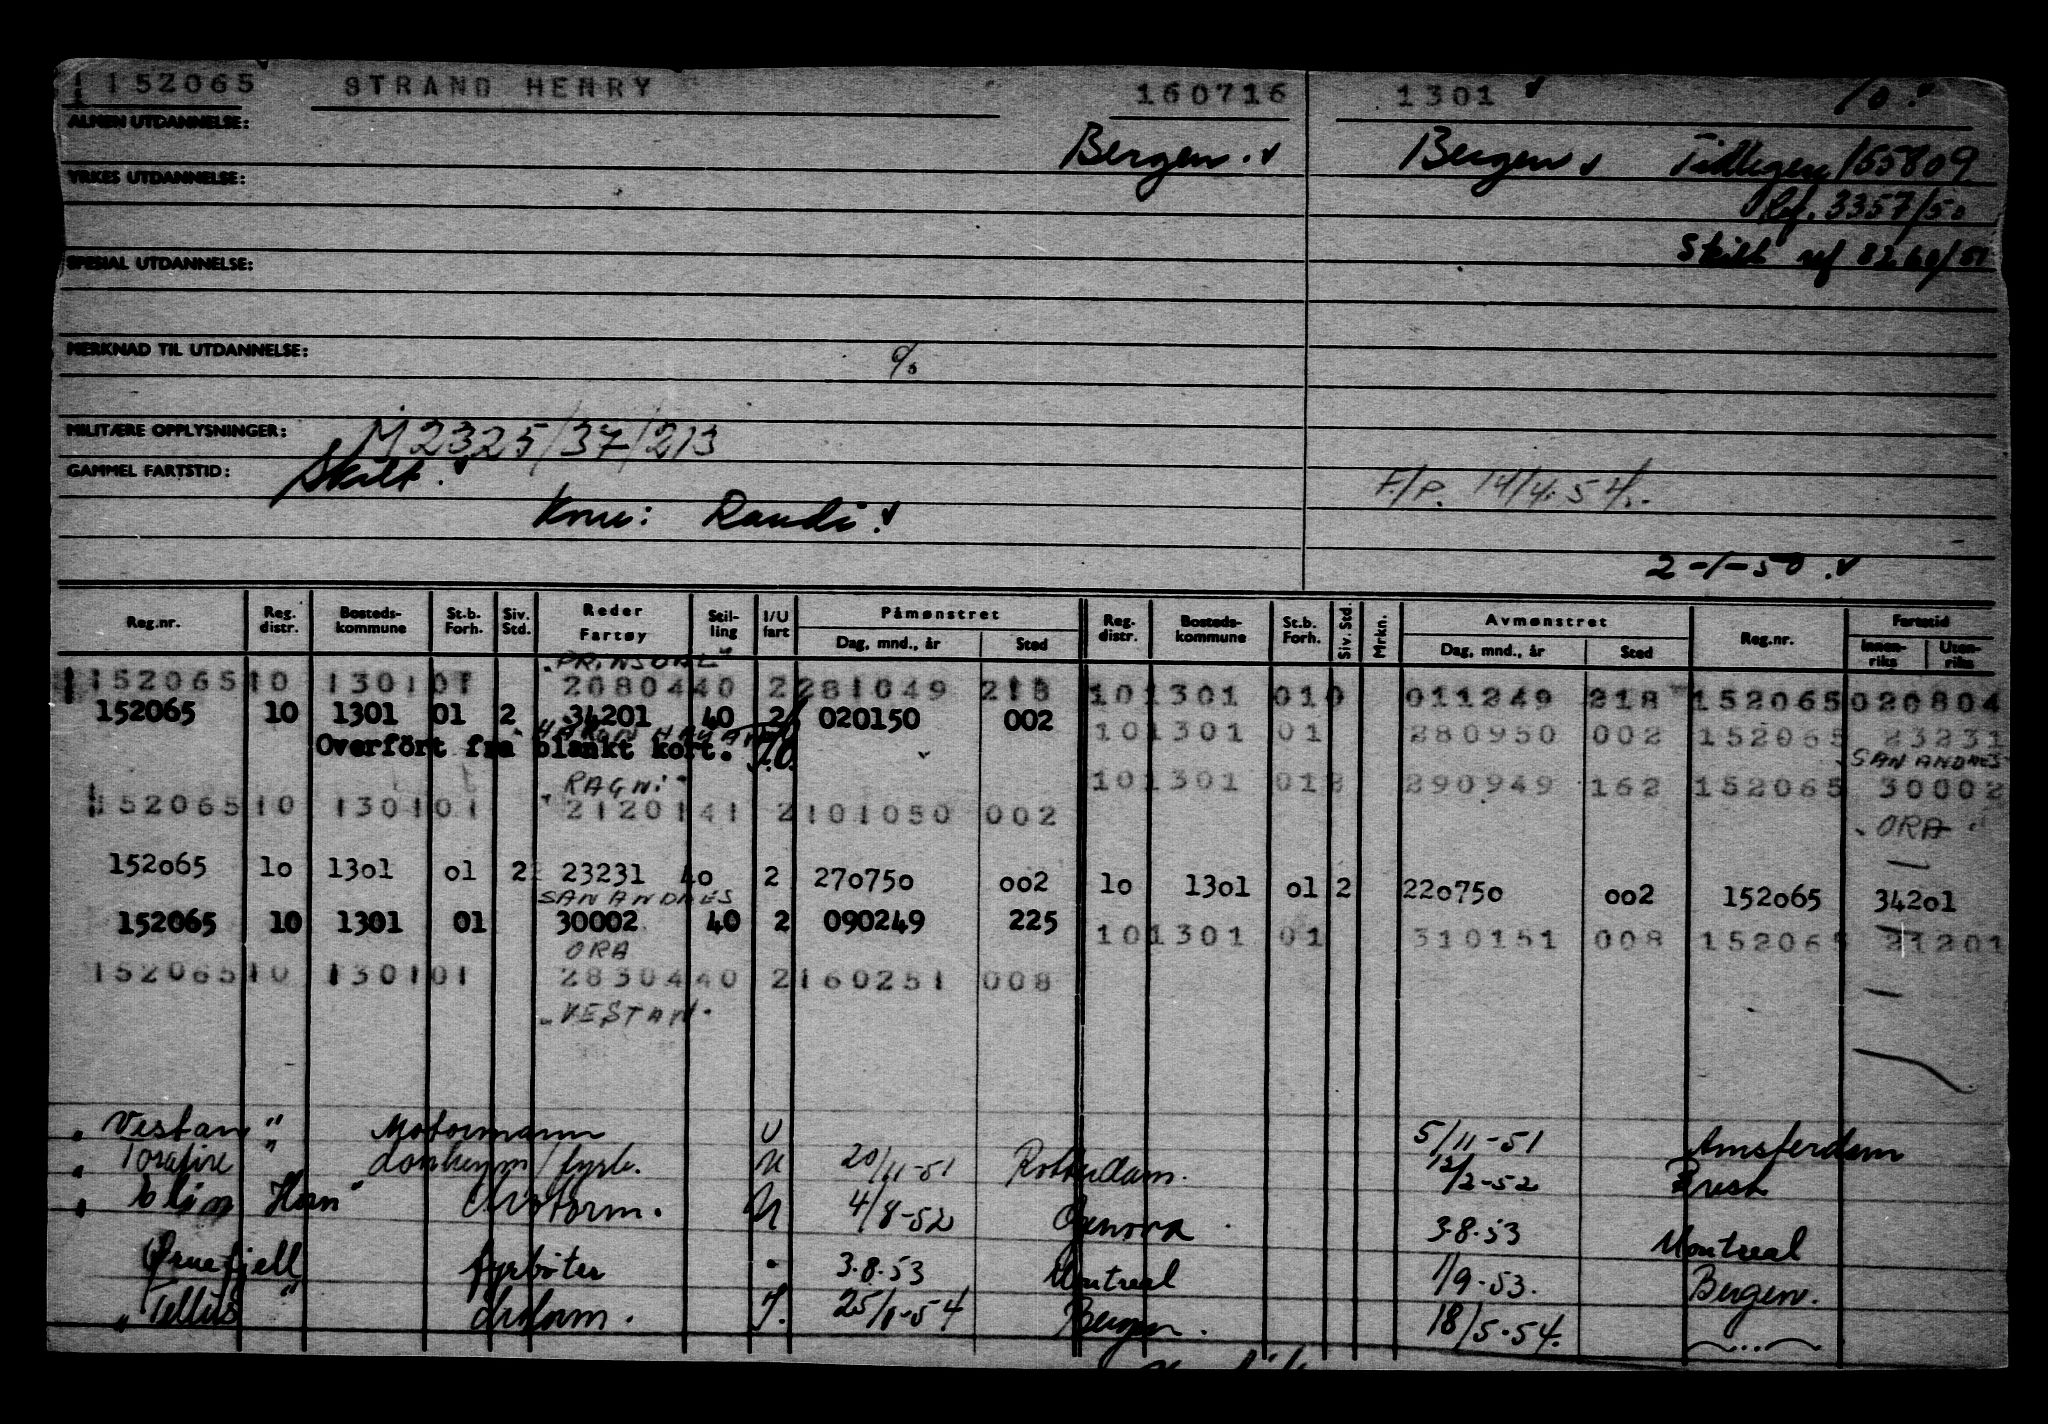 152065 STRAND HENRY 160716 1301
ALMEN UTDANNELSE:
Bergen. Bergen Tidligere 155809
YRKES UTDANNELSE:
Ref. 3357/50
Skilt ref 8260/51
SPESIAL UTDANNELSE:
MERKNAD TIL UTDANNELSE:
MILITÆRE OPPLYSNINGER: M2325/37/213
GAMMEL FARTSTID: Skilt.
F/P. 14/4.54.
Kone: Randi.
2-1-50.
Reg.nr. Reg. distr. Bosteds-kommune St.b. Forh. Siv. Std. Reder Fartøy Stil-ling I/U fart Påmønstret Dag, mnd., år Sted Reg. distr. Bosteds-kommune St.b. Forh. Siv. Std. Mrkn. Avmønstret Dag, mnd., år Sted Reg.nr. Fartstid Innen-riks Uten-riks
152065 10 1301 01 20804 40 2 281049 218 10 1301 01 0 011249 218 152065 020804
152065 10 1301 01 2 34201 40 2 020150 002
10 1301 01 280950 002 152065 23231
Overført fra blankt kort.
SAN ANDRES
"RAGNI" 10 1301 01 2 290949 162 152065 30002
152065 10 1301 01 21201 41 2 101050 002
"ORA"
152065 10 1301 01 2 23231 40 2 270750 002 10 1301 01 2 220750 002 152065 34201
SAN ANDRES
152065 10 1301 01 30002 40 2 090249 225
10 1301 01 310151 008 152065 21201
ORA
152065 10 1301 01 28304 40 2 160251 008
"VESTAN"
"Vestan" Motormann U 5/11-51 Amsterdam
"Torafire" U 20/11-51 Rotterdam. 12/2-52 Brest
"Elin Horn" Motorm. U 4/8-52 Genova 3.8.53 Montreal
Ørnefjell fyrbøter 3.8.53 Montreal 1/9-53. Bergen.
"Tellus" Motorm. I. Bergen. 18/5-54.